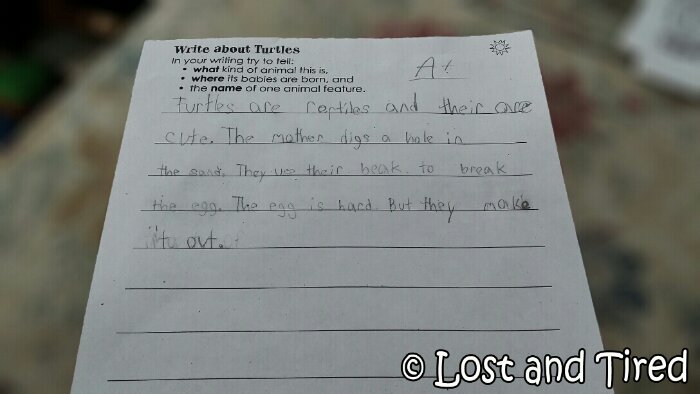 Write about Turtles
In your writing try to tell:
• what kind of animal this is,
• where its babies are born, and
• the name of one animal feature.
A+
Turtles are reptiles and their are
cute. The mother digs a hole in
the sand. They use their beak to break
the egg. The egg is hard. But they make
it out.
© Lost and Tired